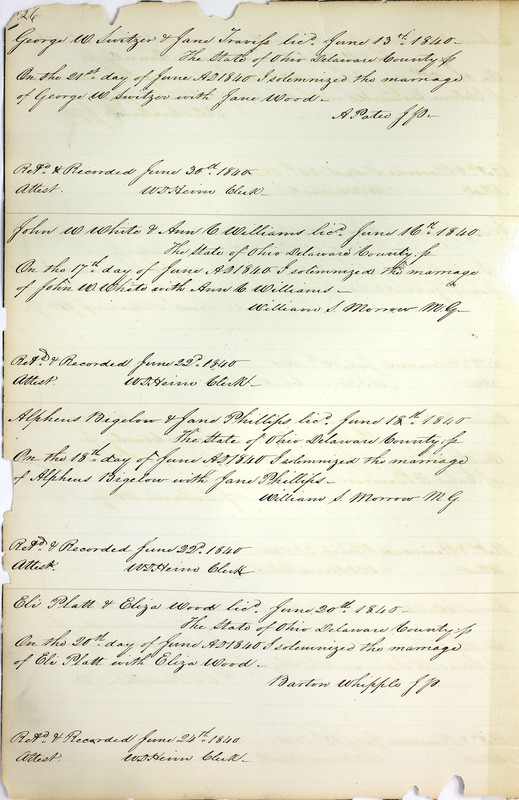 26
George W Switzer & Jane Traviss lic.d June 13th 1840–
The State of Ohio Delaware County: ss
On the 21st day of June AD 1840 I solemnized the marriage
of George W. Switzer with Jane Wood –
A Pater J.P.–
Ret.d & Recorded June 30th 1840
Attest. W.D. Heim Clerk–
John W White & Ann C Williams lic.d June 16th 1840–
The State of Ohio Delaware County: ss
On the 17th day of June AD 1840 I solemnized the marriage
of John W. White with Ann C. Williams –
William S. Morrow M.G–
Ret.d & Recorded June 22d. 1840
Attest W.D. Heim Clerk–
Alpheus Bigelow & Jane Phillips lic.d June 18th 1840
The State of Ohio Delaware County: ss
On the 18th day of June AD 1840 I solemnized the marriage
of Alpheus Bigelow with Jane Phillips–
William S. Morrow M.G
Ret.d & Recorded June 22d. 1840
Attest. W.D. Heim Clerk
Eli Platt & Eliza Wood lic.d June 20th 1840–
The State of Ohio Delaware County: ss
On the 20th day of June AD 1840 I solemnized the marriage
of Eli Platt with Eliza Wood–
Barton Whipple J.P.
Ret.d & Recorded June 24th 1840
Attest. W.D. Heim Clerk–